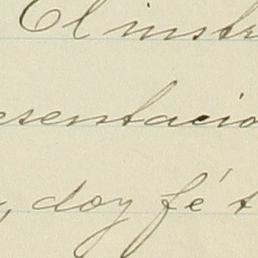 El instr
esentacio
, doy fé t